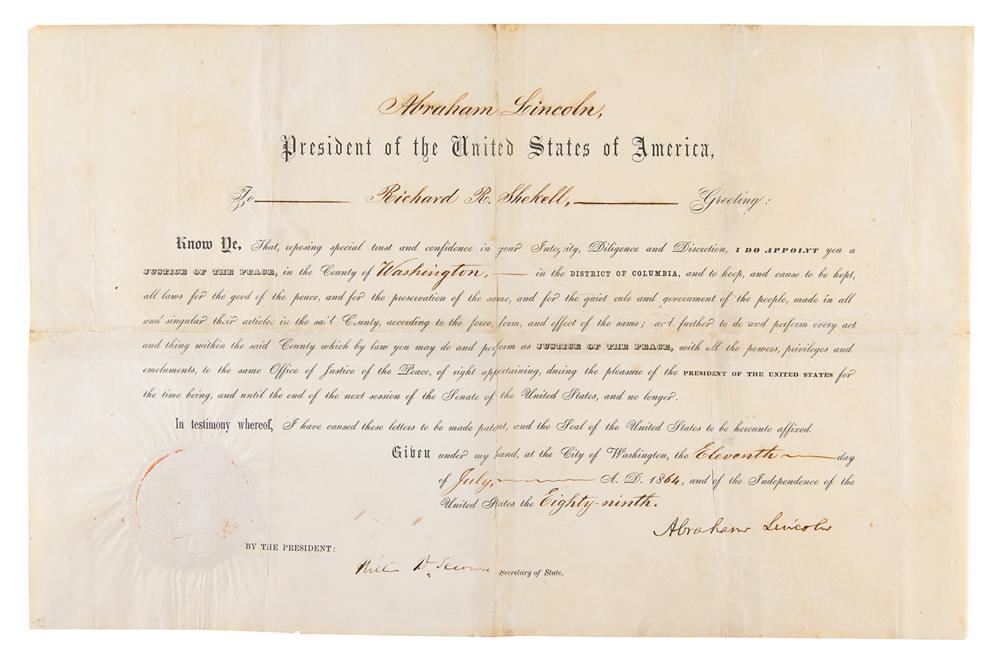 Abraham Lincoln,
President of the United States of America,
To Richard R. Shekell, Greeting:
Know Ye, That, reposing special trust and confidence in your Integrity, Diligence and Discretion, I DO APPOINT you a
JUSTICE OF THE PEACE, in the County of Washington, in the DISTRICT OF COLUMBIA, and to keep, and cause to be kept,
all laws for the good of the peace, and for the preservation of the same, and for the quiet rule and government of the people, made in all
and singular their articles in the said County, according to the force, form, and effect of the same; and further to do and perform every act
and thing within the said County which by law you may do and perform as JUSTICE OF THE PEACE, with all the powers, privileges and
emoluments, to the same Office of Justice of the Peace, of right appertaining, during the pleasure of the PRESIDENT OF THE UNITED STATES for
the time being, and until the end of the next session of the Senate of the United States, and no longer.
In testimony whereof, I have caused these letters to be made patent, and the Seal of the United States to be hereunto affixed.
Given under my hand, at the City of Washington, the Eleventh day
of July, A. D. 1864, and of the Independence of the
United States the Eighty-ninth.
Abraham Lincoln
BY THE PRESIDENT:
William H. Seward Secretary of State.